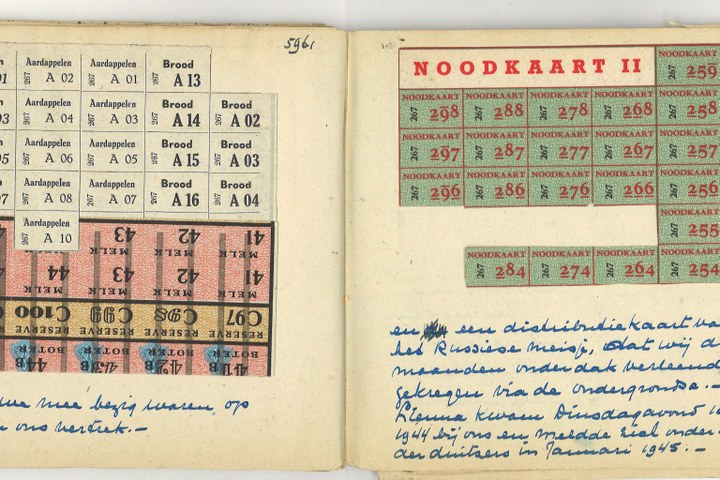 596.
Aardappelen Aardappelen Brood
01 267 A 02 267 A 01 267 A 13
Aardappelen Aardappelen Brood Brood
03 267 A 04 267 A 03 267 A 14 267 A 02
Aardappelen Aardappelen Brood Brood
05 267 A 06 267 A 05 267 A 15 267 A 03
Aardappelen Aardappelen Brood Brood
07 267 A 08 267 A 07 267 A 16 267 A 04
Aardappelen
267 A 10
43 42 41
MELK MELK MELK
44 43 42 41
MELK MELK MELK MELK
C100 C99 C98 C97
RESERVE RESERVE RESERVE RESERVE
BOTER BOTER BOTER BOTER
44B 43B 42B 41B
we mee bezig waren, op
ons vertrek.—
NOODKAART II
NOODKAART
267 259
NOODKAART NOODKAART NOODKAART NOODKAART NOODKAART
267 298 267 288 267 278 267 268 267 258
NOODKAART NOODKAART NOODKAART NOODKAART NOODKAART
267 297 267 287 267 277 267 267 267 257
NOODKAART NOODKAART NOODKAART NOODKAART NOODKAART
267 296 267 286 267 276 267 266 267 256
NOODKAART
267 255
NOODKAART NOODKAART NOODKAART NOODKAART
267 284 267 274 267 264 267 254
en een distributiekaart va
het Russiese meisje, dat wij d
maanden onderdak verleend
gekregen via de ondergrondse.—
kwam Dinsdagavond
1944 bij ons en meldde zich onder
der duitsers in Januari 1945.—